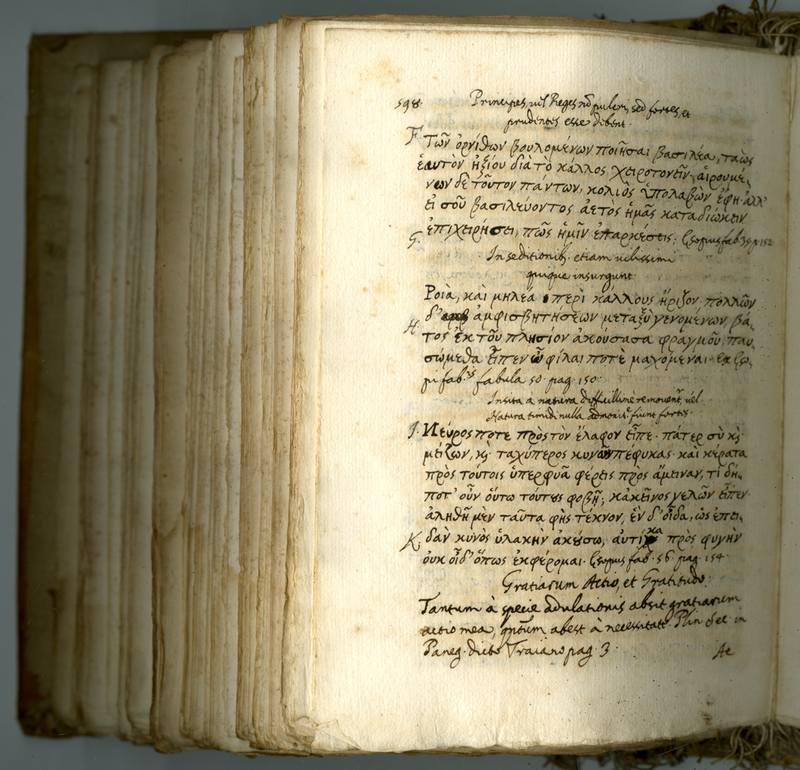 598. Principes, vel Reges nõ pulcri, sed fortes, et
prudentes esse debent.
F. Τῶν ὀρνίθων βουλομένων ποιῆσαι βασιλέα, ταὼς
ἑαυτὸν ἠξίου διὰ τὸ κάλλος χειροτονεῖν, αἱρουμέ,
νων δὲ τοῦτον πάντων, κολιὸς ὑπολαβὼν ἔφη. ἀλλ'
εἰ σοῦ βασιλεύοντος ἀετὸς ἡμᾶς καταδιώκειν
G. ἐπιχειρήσει, πῶς ἡμῖν ἐπαρκέσεις; Esopus fab.
In seditionib. etiam vilissimi
quique insurgunt
Ροιὰ, καὶ μηλέα περὶ κάλλους ἤριζον. πολλῶν
H. δ' ἀμφισβητήσεων μεταξὺ γενομένων, βά,
τος ἐκ τοῦ πλησίον ἀκούσασα φραγμοῦ, παυ,
σώμεθα εἶπεν ὦ φίλαι ποτὲ μαχόμεναι. Ex Eso,
pi fab.is fabula 50. pag. 150.
Insita a natura difficillime removent.r, vel
Natura timidi nulla admonit. fiunt fortes.
J. Νεύρος ποτε πρὸς τὸν ἔλαφον εἶπε. πάτερ σὺ κ̀
μείζων, κ̀ ταχύτερος κυνῶν πέφυκας. καὶ κέρατα
πρὸς τούτοις ὑπερφυᾶ φέρεις πρὸς ἄμυναν, τί δή,
ποτ' οὖν οὕτω τούτους φοβῇ; κἀκεῖνος γελῶν εἶπεν.
ἀληθῆ μὲν ταῦτα φῂς τέκνον, ἓν δ' οἶδα, ὡς ἐπει,
K. δὰν κυνὸς ὑλακὴν ἀκούσω, αὐτίκα πρὸς φυγὴν
οὐκ οἶδ' ὅπως ἐκφέρομαι. Esopus fab. 56. pag. 154.
Gratiarum Actio, et Gratitudo.
Tantum à specie adulationis absit gratiarum
actio mea, qntum abest à necessitate. Plin. Sec. in
Paneg. dicto Traiano pag. 3.
At